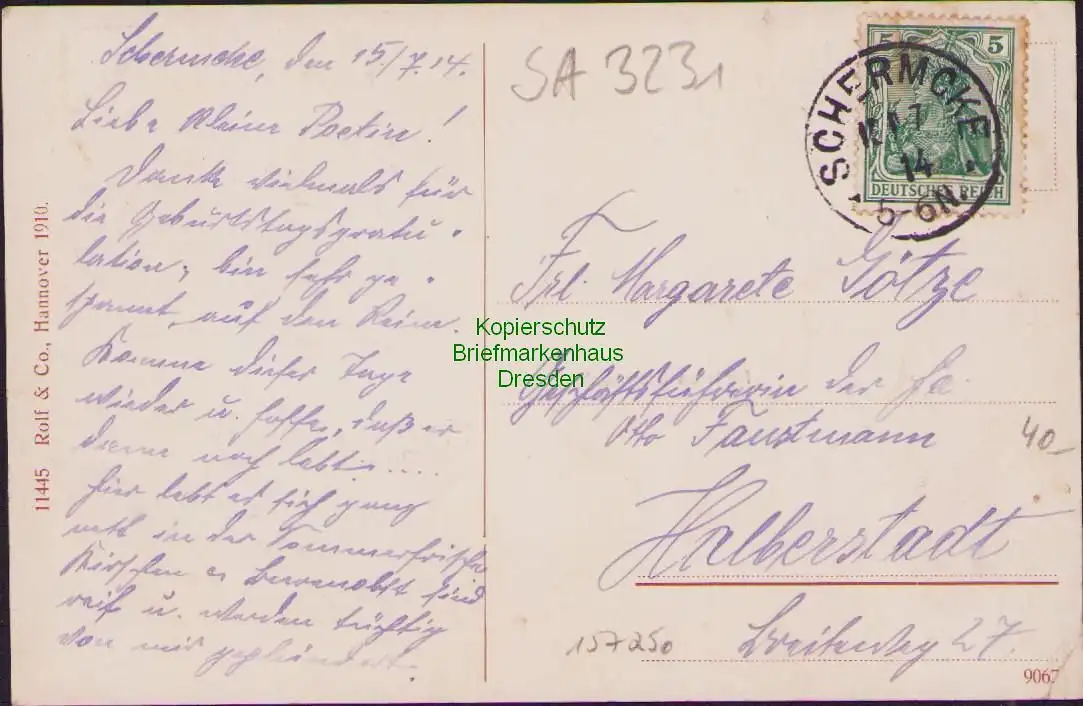 Schermcke, den 15/7.14.
Liebe kleine Poetin!
Danke vielmals für
die Geburtstagsgratu-
lation; bin sehr ge-
spannt auf den Reim.
Komme dieser Tage
wieder u. hoffe, daß er
dann noch lebt.....
hier lebt es sich ganz
nett in der Sommerfrische
Kirschen u Beerenobst sind
reif u. werden tüchtig
von mir geplündert.
11445 Rolf & Co., Hannover 1910.
SA 3231
5 5
DEUTSCHES REICH
SCHERMCKE
7
14
5-6N.
Frl. Margarete Götze
Geschäftsführerin der Fa.
Otto Faustmann
Halberstadt
Breiteweg 27.
40
157250
9067
Kopierschutz
Briefmarkenhaus
Dresden